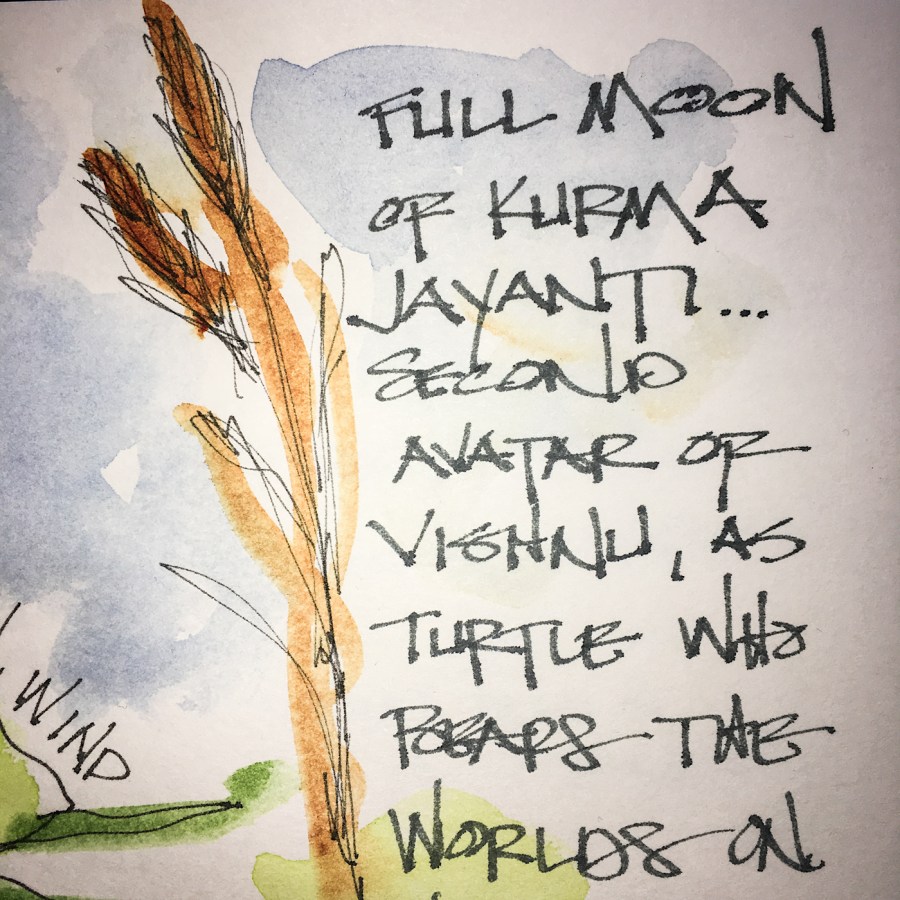 FULL MOON
OF KURMA
JAYANTI...
SECOND
AVATAR OF
VISHNU, AS
TURTLE WHO
BEARS THE
WORLDS ON
WIND